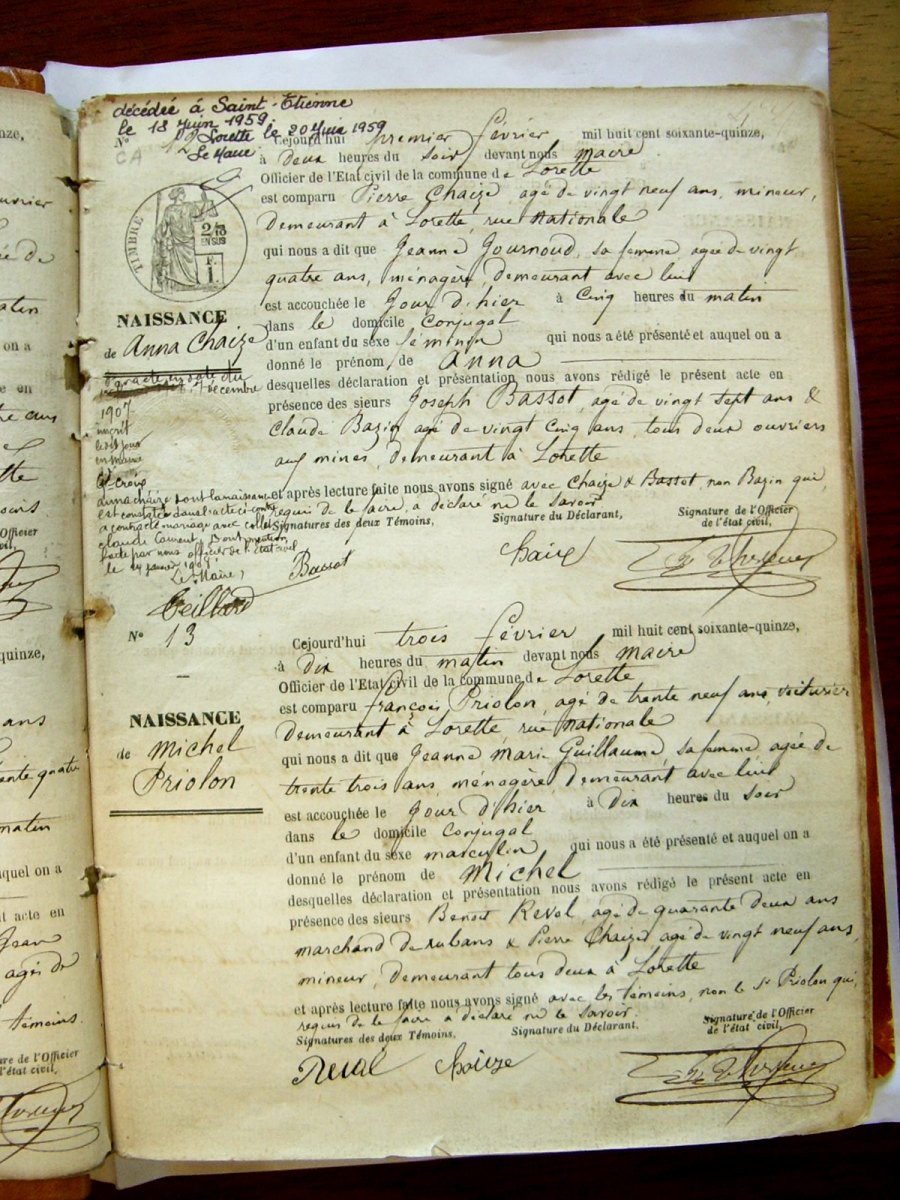 décédée à Saint-Etienne
le 18 Juin 1959
Lorette le 20 Juin 1959
Le Maire
N° 12
CA
TIMBRE
2/10
EN SUS
F.
1.
NAISSANCE
de Anna Chaize
décembre
1907
inscrit
le dit jour
en mairie
anna chaize dont la naissance
est constatée dans l'acte ci-contre
a contracté mariage avec
claude Laurent Dont mention
faite par nous officier de l'état civil
le 14 janvier 1908
Le Maire,
Teillard
Cejourd'hui premier février mil huit cent soixante-quinze,
à deux heures du soir devant nous maire
Officier de l'Etat civil de la commune de Lorette
est comparu Pierre Chaize, agé de vingt neuf ans, mineur,
demeurant à Lorette, rue Nationale
qui nous a dit que Jeanne Journoud, sa femme agée de vingt
quatre ans, ménagère, demeurant avec lui
est accouchée le Jour d'hier à Cinq heures du matin
dans le domicile Conjugal
d'un enfant du sexe féminin qui nous a été présenté et auquel on a
donné le prénom de Anna
desquelles déclaration et présentation nous avons rédigé le présent acte en
présence des sieurs Joseph Bassot, agé de vingt sept ans &
Claude Bazin agé de vingt Cinq ans, tous deux ouvriers
aux mines, demeurant à Lorette
et après lecture faite nous avons signé avec Chaize & Bassot, non Bazin qui,
requis de le faire, a déclaré ne le savoir
Signatures des deux Témoins, Signature du Déclarant, Signature de l'Officier
de l'état civil,
Bassot Chaize
N° 13
NAISSANCE
de Michel
Priolon
Cejourd'hui trois février mil huit cent soixante-quinze,
à Dix heures du matin devant nous maire
Officier de l'Etat civil de la commune de Lorette
est comparu françois Priolon, agé de trente neuf ans, voiturier
demeurant à Lorette, rue Nationale
qui nous a dit que Jeanne Marie Guillaume, sa femme agée de
trente trois ans, ménagère, demeurant avec lui
est accouchée le Jour d'hier à Dix heures du soir
dans le domicile Conjugal
d'un enfant du sexe masculin qui nous a été présenté et auquel on a
donné le prénom de Michel
desquelles déclaration et présentation nous avons rédigé le présent acte en
présence des sieurs Benoit Revol, agé de quarante deux ans
marchand de rubans & Pierre Chaize, agé de vingt neuf ans,
mineur, demeurant tous deux à Lorette
et après lecture faite nous avons signé avec les témoins, non le Sr Priolon qui,
requis de le faire a déclaré ne le savoir.
Signatures des deux Témoins, Signature du Déclarant. Signature de l'Officier
de l'état civil,
Revol Chaize